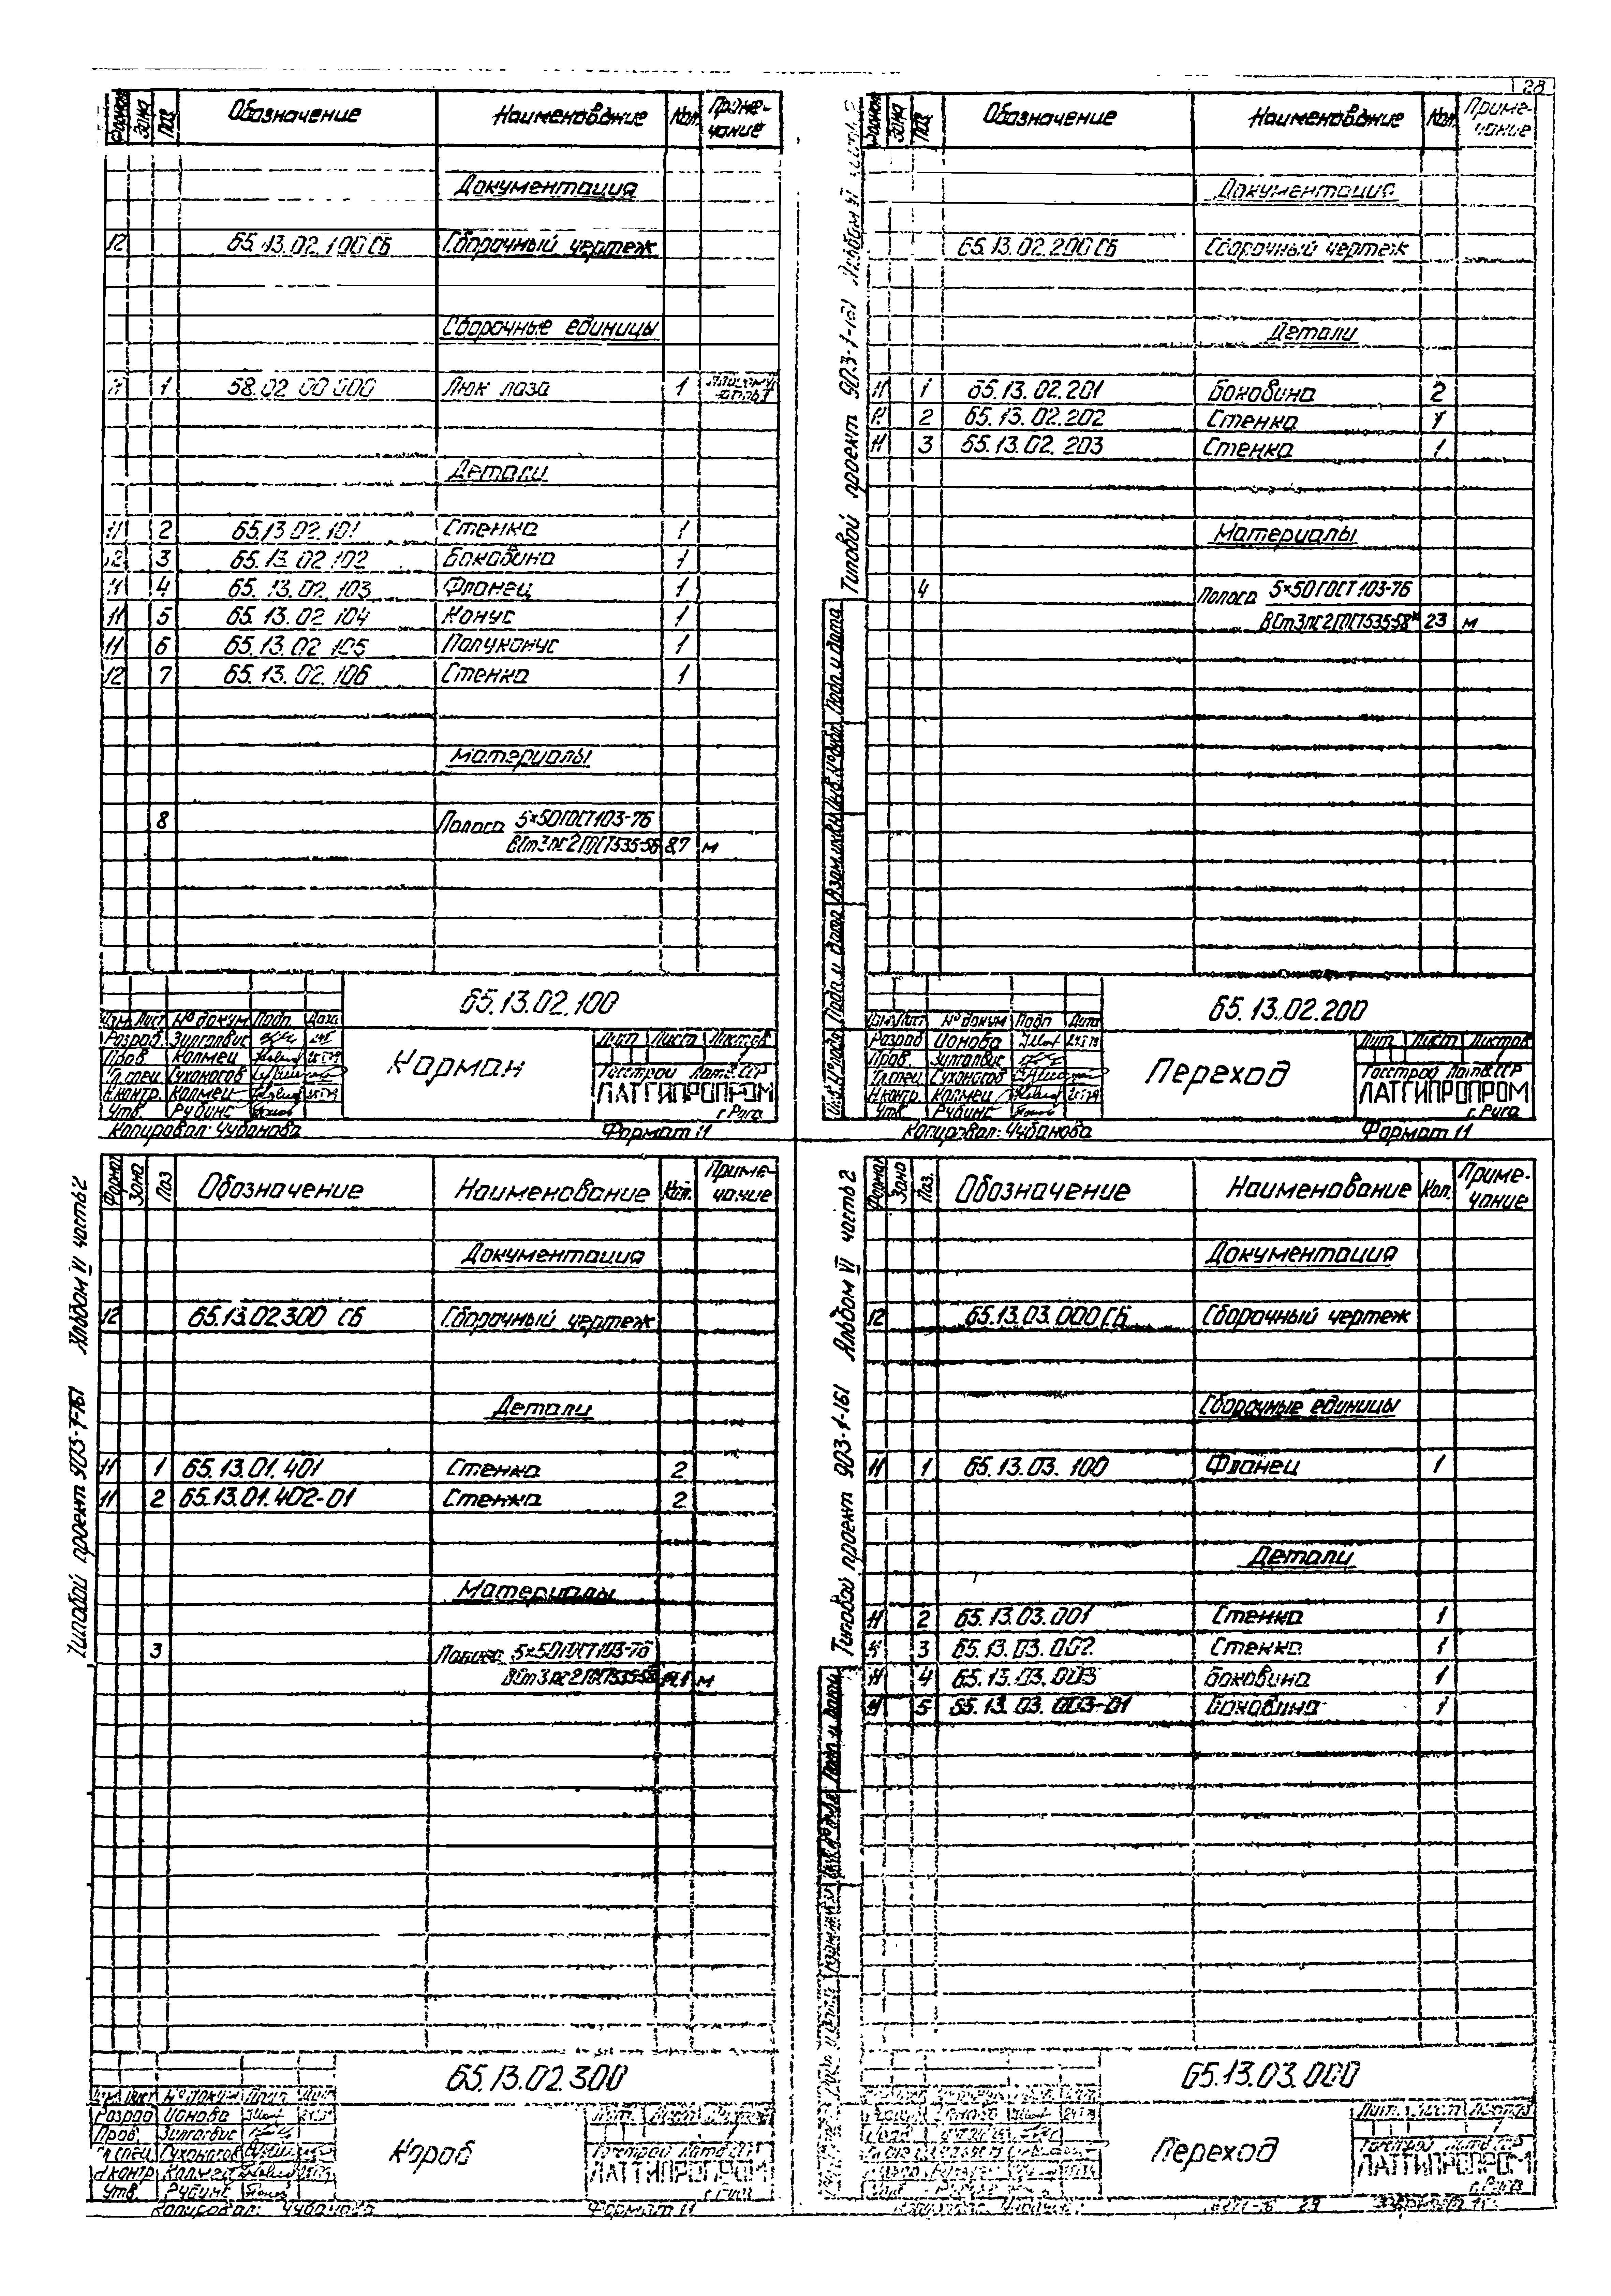 28
Формат Зона Поз. Обозначение Наименование Кол. Приме-
чание
Документация
12 65.13.02.100 СБ Сборочный чертеж
Сборочные единицы
11 1 58.02.00.000 Люк лаза 1
Детали
11 2 65.13.02.101 Стенка 1
12 3 65.13.02.102 Боковина 1
11 4 65.13.02.103 Фланец 1
11 5 65.13.02.104 Конус 1
11 6 65.13.02.105 Полуконус 1
12 7 65.13.02.106 Стенка 1
Материалы
8 Полоса 5×50 ГОСТ 103-76
ВСт3пс2 ГОСТ 535-58 8,7 м
65.13.02.100
Изм. Лист № докум Подп. Дата
Разраб Зилгалвис
Пров. Калмец
Гл. спец Суханогов
Н.контр. Калмец
Утв. Рубинс
Карман
Лит. Листа Листов
1
Госстрой Латв. ССР
ЛАТГИПРОПРОМ
г. Рига
Копировал: Чубанова Формат 11
Типовой проект 903-1-161 Альбом VI часть 2
Формат Зона Поз. Обозначение Наименование Кол. Приме-
чание
Документация
65.13.02.200 СБ Сборочный чертеж
Детали
11 1 65.13.02.201 Боковина 2
11 2 65.13.02.202 Стенка 1
11 3 65.13.02.203 Стенка 1
Материалы
4 Полоса 5×50 ГОСТ 103-76
ВСт3пс2 ГОСТ 535-58* 23 м
Инв. № подл. Подп. и дата Взам. инв. № Инв. № дубл. Подп. и дата
65.13.02.200
Изм. Лист № докум Подп Дата
Разраб Ионова
Пров. Зилгалвис
Гл. спец Суханогов
Н.контр. Калмец
Утв. Рубинс
Переход
Лит. Лист Листов
1
Госстрой Латв. ССР
ЛАТГИПРОПРОМ
г. Рига
Копировал: Чубанова Формат 11
Типовой проект 903-1-161 Альбом VI часть 2
Формат Зона Поз Обозначение Наименование Кол. Приме-
чание
Документация
12 65.13.02.300 СБ Сборочный чертеж
Детали
11 1 65.13.01.401 Стенка 2
11 2 65.13.01.402-01 Стенка 2
Материалы
3 Полоса 5×50 ГОСТ 103-76
ВСт3пс2 ГОСТ 535-58 м
65.13.02.300
Изм. Лист № докум Подп. Дата
Разраб Ионова
Пров. Зилгалвис
Гл. спец Суханогов
Н.контр Калмец
Утв. Рубинс
Короб
Лит. Лист Листов
Госстрой Латв. ССР
ЛАТГИПРОПРОМ
г. Рига
Копировал: Чубанова Формат 11
Типовой проект 903-1-161 Альбом VI часть 2
Формат Зона Поз. Обозначение Наименование Кол. Приме-
чание
Документация
12 65.13.03.000 СБ Сборочный чертеж
Сборочные единицы
11 1 65.13.03.100 Фланец 1
Детали
11 2 65.13.03.001 Стенка 1
11 3 65.13.03.002 Стенка 1
11 4 65.13.03.003 Боковина 1
11 5 65.13.03.003-01 Боковина 1
65.13.03.000
Переход
Лит. Лист Листов
Госстрой Латв. ССР
ЛАТГИПРОПРОМ
г. Рига
29